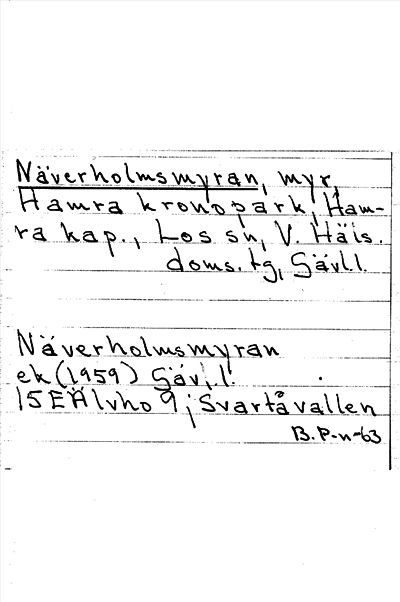 Näverholmsmyran, myr,
Hamra kronopark, Ham-
ra kap., Los sn, V. Häls.
doms. tg, Gävl.l.
Näverholmsmyran
ek (1959) Gävl.l.
15E Älvho 9; Svartåvallen
B. P-n-63